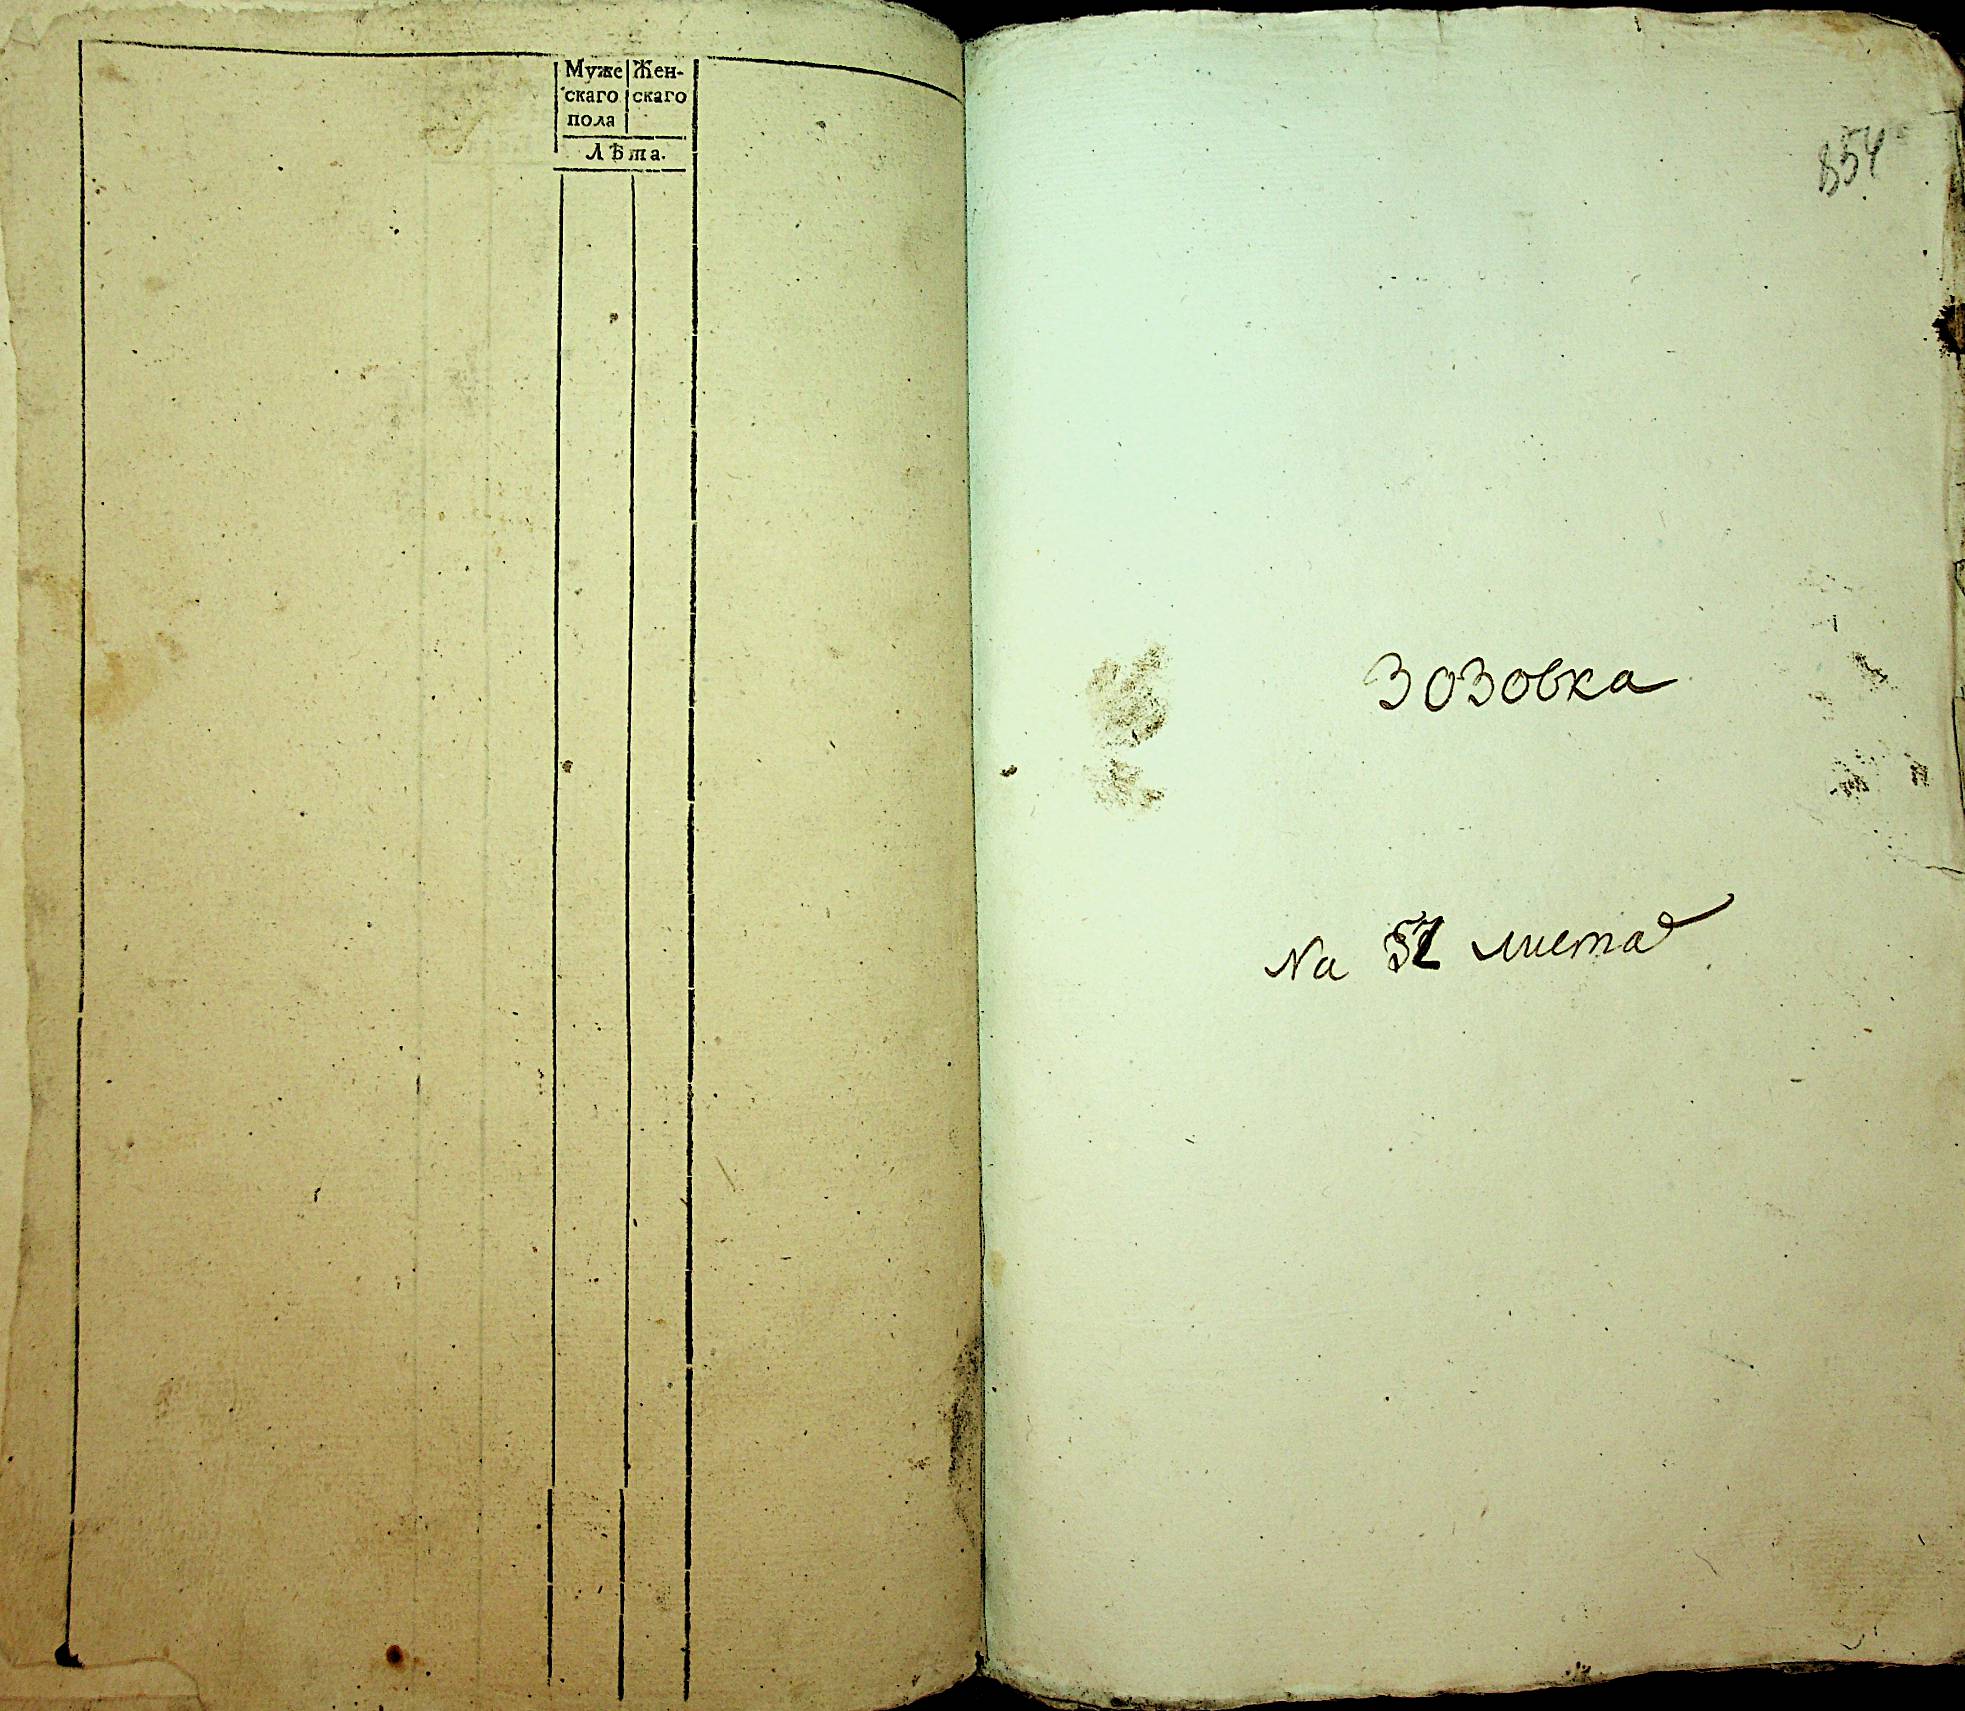 Муже Жен-
скаго скаго
пола
Лѣта.
854
Зозовка
На листа